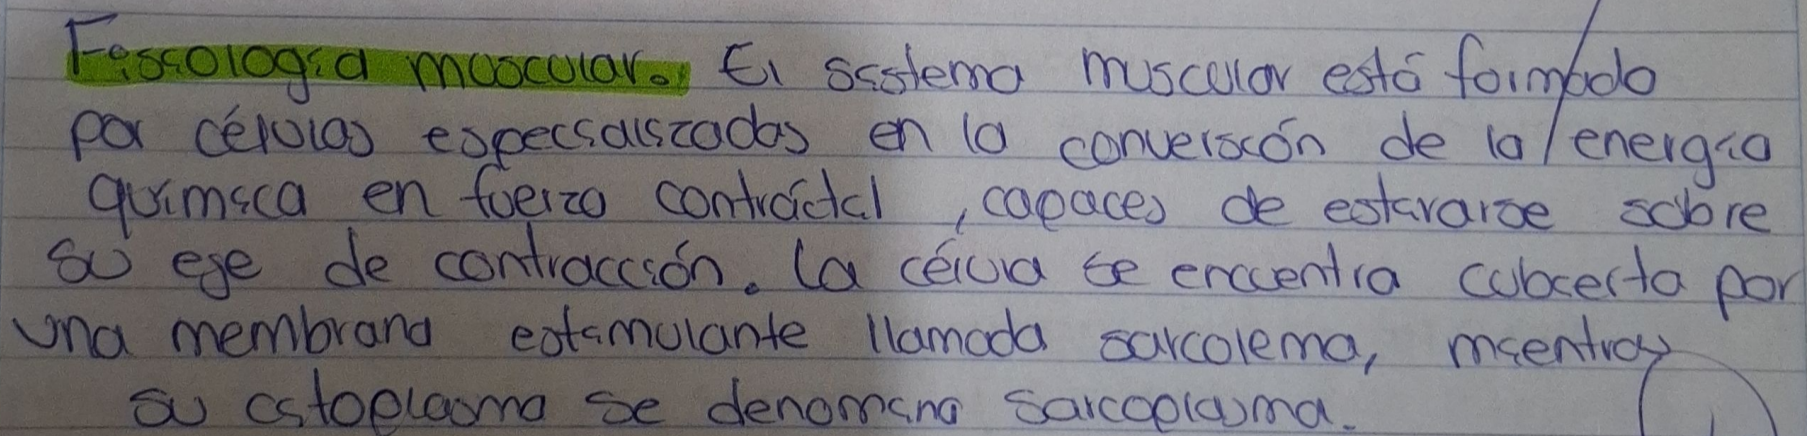 Fisiología muscular. El sistema muscular está formado
por células especializadas en la conversión de la energía
química en fuerza contráctil, capaces de estirarse sobre
su eje de contracción. La célula se encuentra cubierta por
una membrana estimulante llamada sarcolema, mientras
su citoplasma se denomina sarcoplasma.